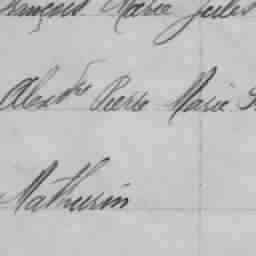 François Marie Jules
Alexdre Pierre Marie
Mathurin